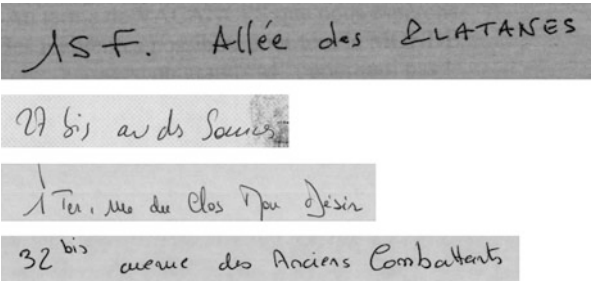 15 F. Allée des PLATANES
27 bis av ds
1 Ter, rue du Clos Mon Désir
32 bis avenue des Anciens Combattants